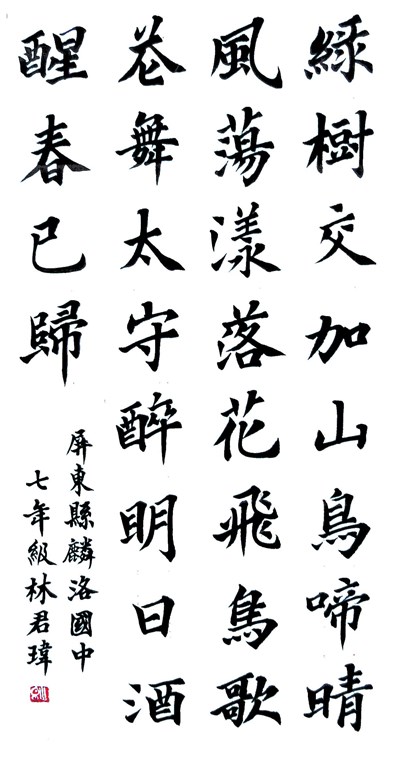 綠樹交加山鳥啼晴
風蕩漾落花飛鳥歌
花舞太守醉明日酒
醒春已歸
屏東縣麟洛國中
七年級林君瑋